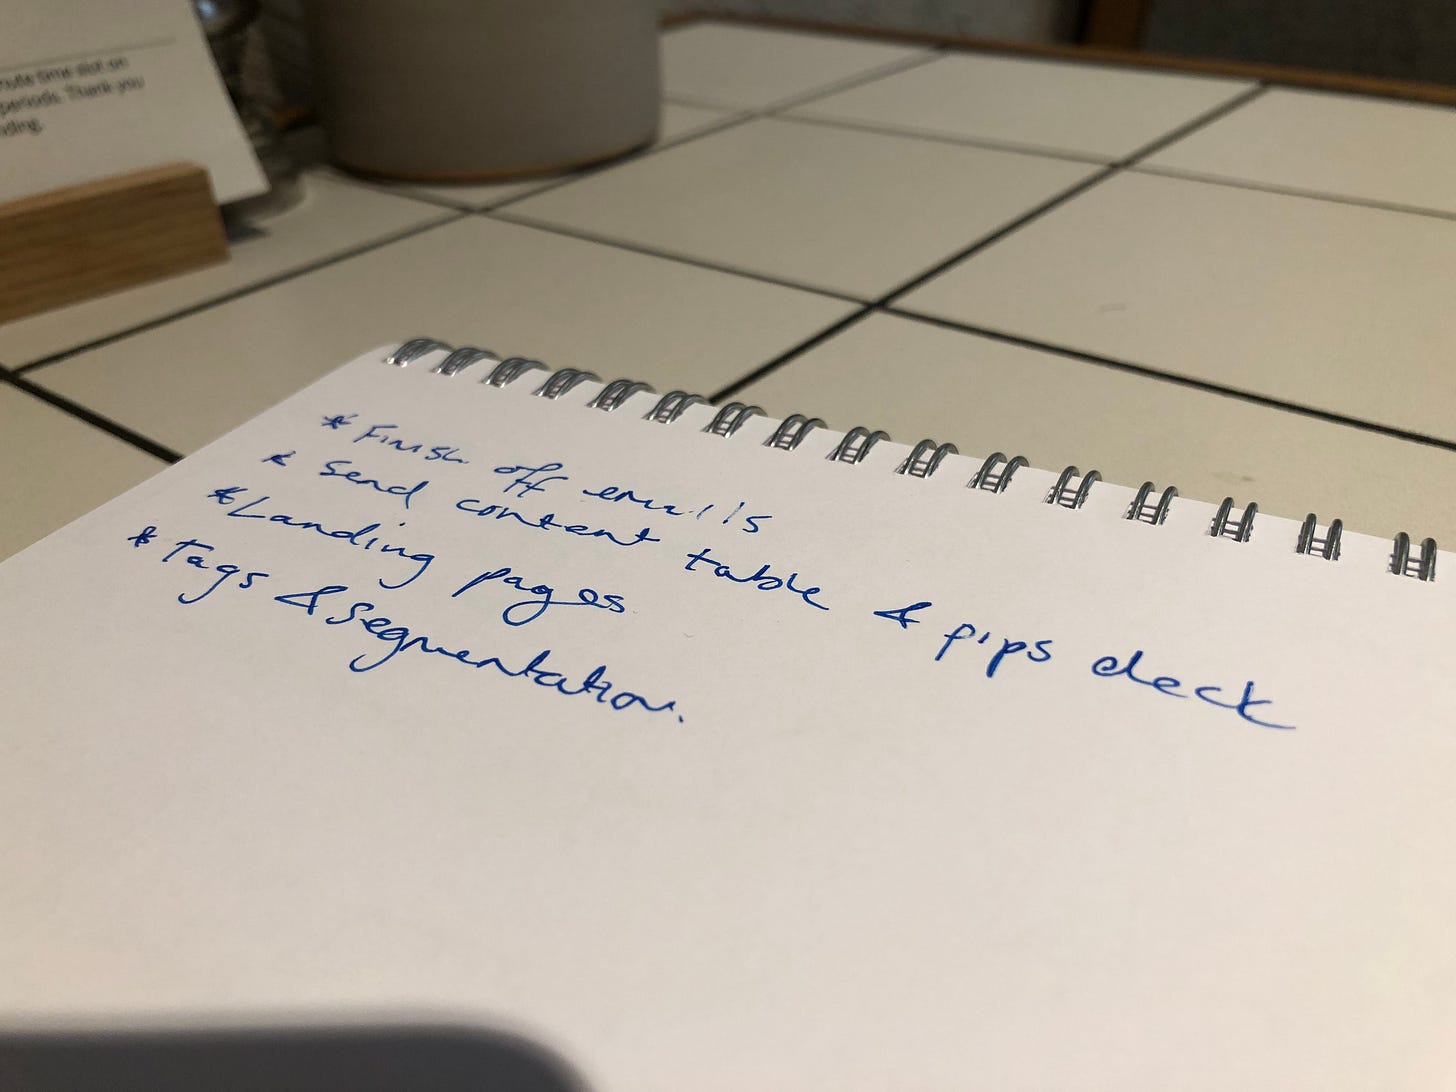 nute time slot on
periods. Thank you
nding.
* Finish off emails
* Send content table & pips deck
* Landing pages
* Tags & segmentation.